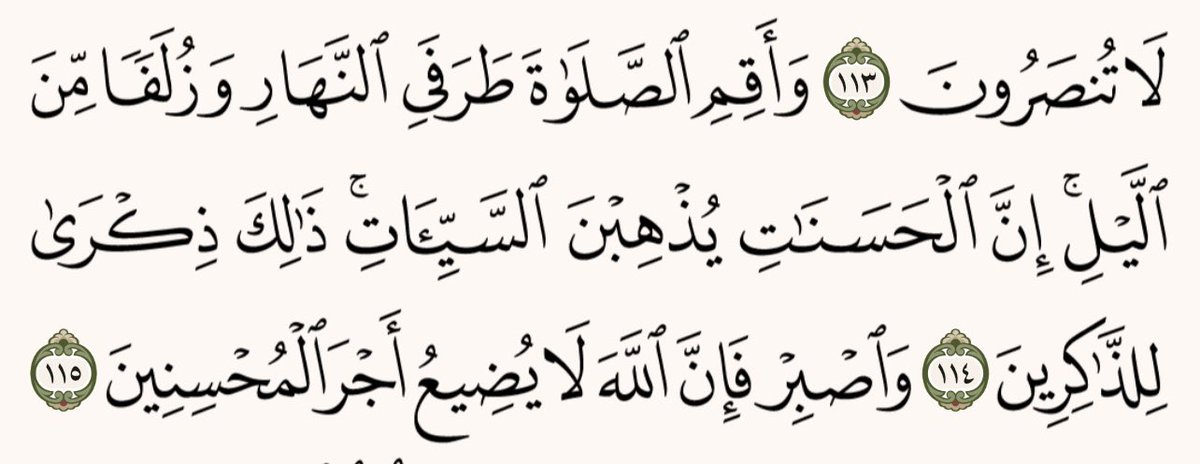 لَا تُنصَرُونَ ١١٣ وَأَقِمِ ٱلصَّلَوٰةَ طَرَفَىِ ٱلنَّهَارِ وَزُلَفًا مِّنَ
ٱلَّيۡلِۚ إِنَّ ٱلۡحَسَنَٰتِ يُذۡهِبۡنَ ٱلسَّيِّـَٔاتِۚ ذَٰلِكَ ذِكۡرَىٰ
لِلذَّٰكِرِينَ ١١٤ وَٱصۡبِرۡ فَإِنَّ ٱللَّهَ لَا يُضِيعُ أَجۡرَ ٱلۡمُحۡسِنِينَ ١١٥